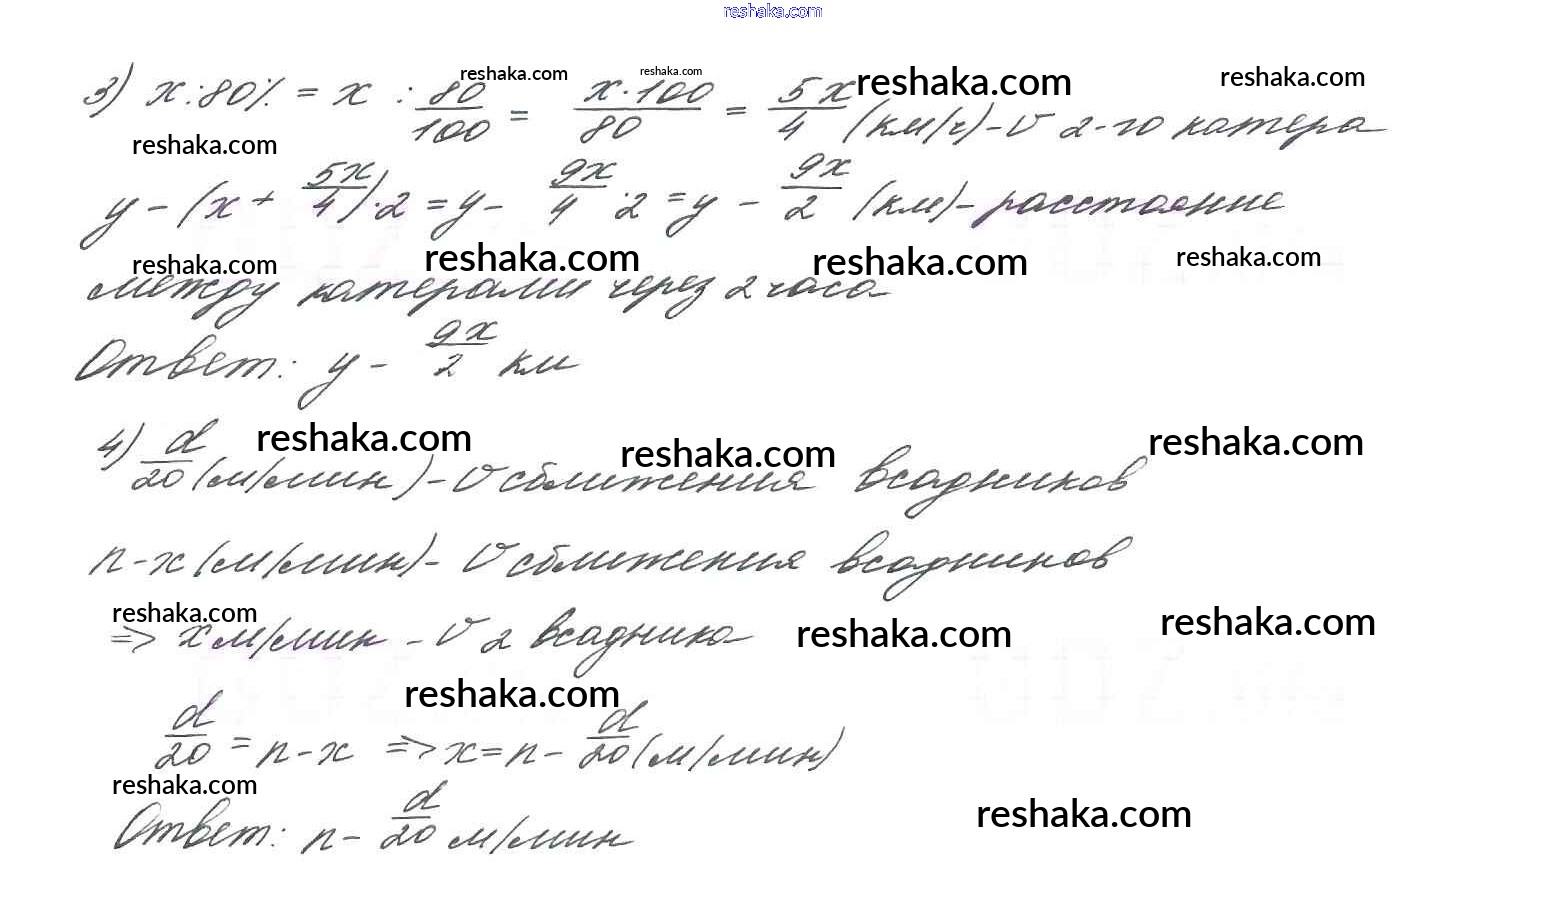 reshaka.com
3) x : 80% = x : 80/100 = x·100/80 = 5x/4 (км/ч) - v 2-го катера
reshaka.com reshaka.com reshaka.com reshaka.com
reshaka.com
y - (x + 5x/4)·2 = y - 9x/4 · 2 = y - 9x/2 (км) - расстояние
reshaka.com reshaka.com reshaka.com reshaka.com
между катерами через 2 часа
Ответ: y - 9x/2 км
reshaka.com reshaka.com reshaka.com
4) d/20 (м/мин) - v сближения всадников
n - x (м/мин) - v сближения всадников
reshaka.com reshaka.com reshaka.com
=> x м/мин - v 2 всадника
reshaka.com
d/20 = n - x => x = n - d/20 (м/мин)
reshaka.com reshaka.com
Ответ: n - d/20 м/мин